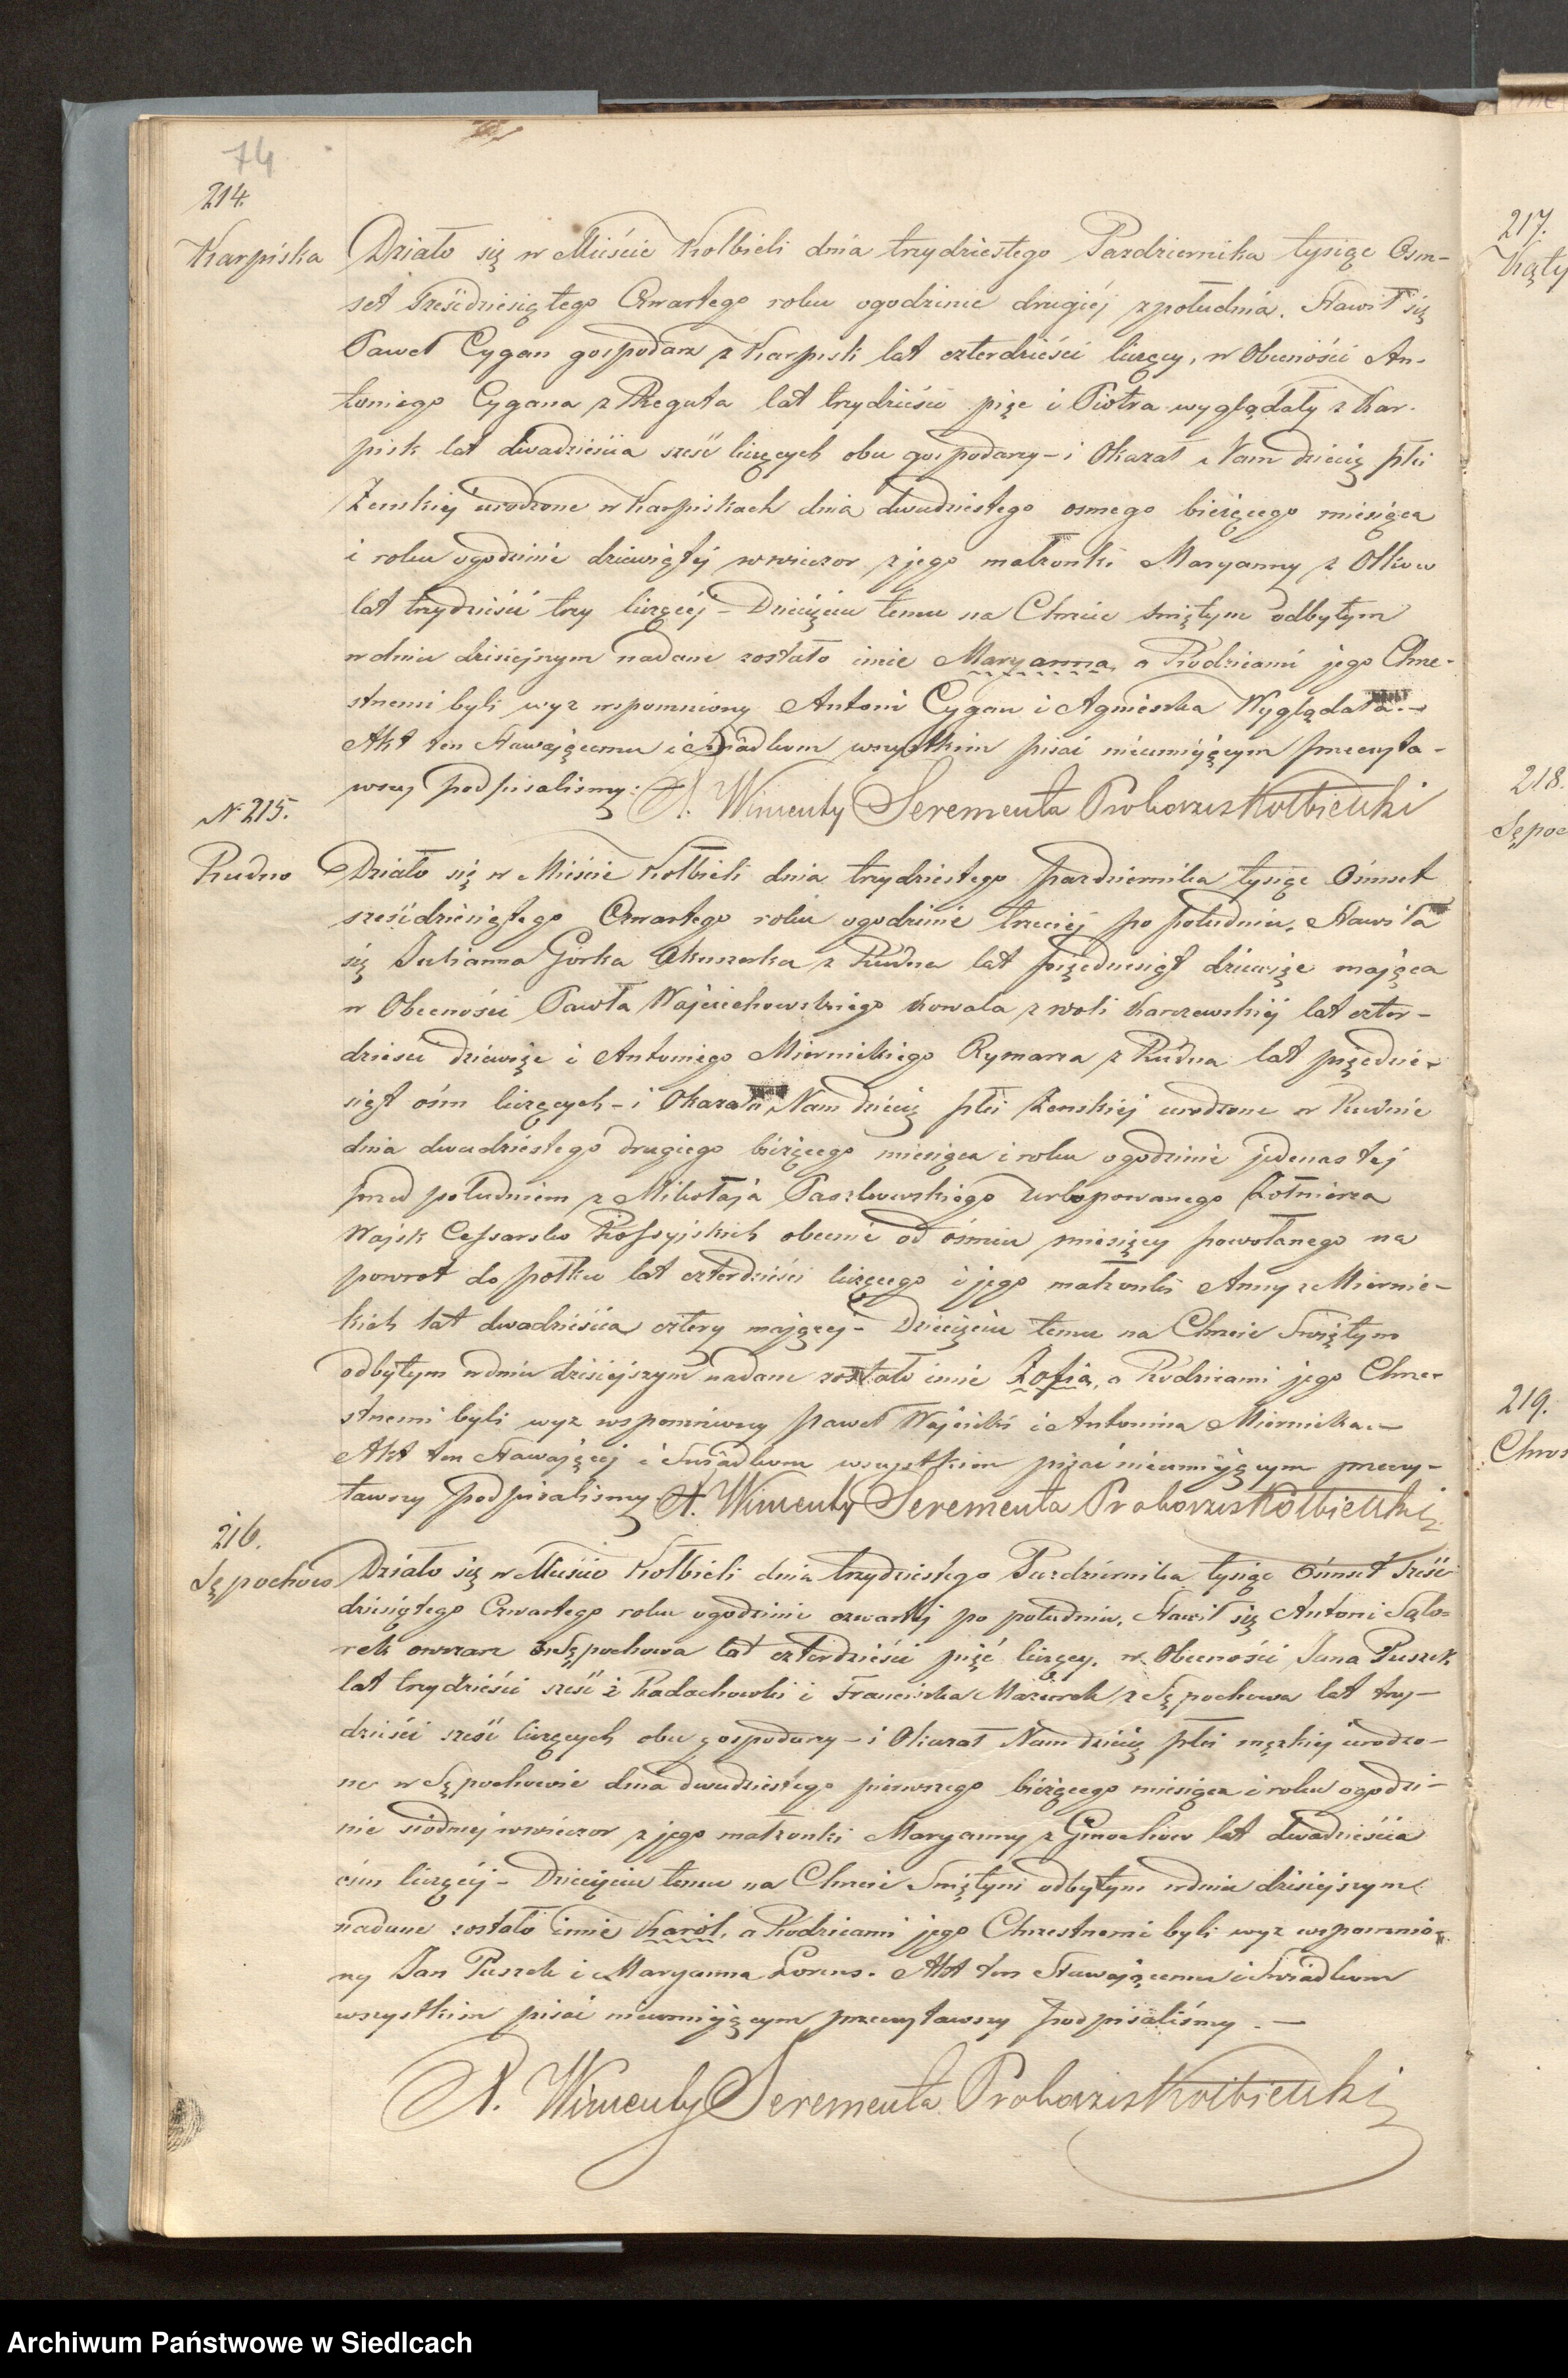 74
214.
Karpiska
Działo się w Mieście Kołbieli dnia trzydziestego Pazdziernika tysiąc Osm-
set Sześćdziesiątego Czwartego roku ogodzinie drugiéj zpołudnia. Stawił się
Paweł Cygan gospodarz z Karpisk lat czterdzieści liczący, w Obecności An-
toniego Cygana z Reguta lat trzydzieście pięc i Piotra wyglądały z Kar-
pisk lat dwadzieścia sześć liczących obu gospodarzy – i Okazał Nam dziecię płci
Żenskiéj urodzone w Karpiskach dnia dwudziestego osmego bieżącego miesiąca
i roku ogodzinie dziewiątéj wwieczor z jego małżonki Maryanny z Ołkow
lat trzydzieści trzy liczącéj – Dziecięciu temu na Chrzcie Świętym odbytym
wdniu dzisiejszym nadane zostało imie Maryanna, a Rodzicami jego Chrze-
stnemi byli wyz wspomniony Antoni Cygan i Agnieszka Wyglądała. –
Akt ten Stawającemu i Świadkom wszystkim pisać nieumiejącym przeczyta-
wszy podpisalismy: X. Wincenty Serementa Proboszcz Kołbielski
N 215.
Rudno
Działo się w Mieście Kołbieli dnia trzydziestego pazdziernika tysiąc Ośmset
sześćdziesiątego Czwartego roku ogodzinie trzeciéj po południu, Stawiła
się Julianna Górka Akuszerka z Rudna lat pięcdziesiąt dziewięc mająca
w Obecności Pawła Wojciechowskiego kowala z woli Karczewskiéj lat czter-
dzieści dziewięc i Antoniego Miernickiego Rymarza z Rudna lat pięcdzie-
siąt óśm liczących – i Okazała Nam dziecię płci Żenskiéj urodzone w Rudnie
dnia dwudziestego drugiego bieżącego miesiąca i roku ogodzinie jedenastéj
przed południem z Mikołaja Paszkowskiego Urlopowanego Żołnierza
Wojsk Cessarsko Rossyjskich obecnie od ośmiu miesięcy powołanego na
powrót do połku lat czterdzieści liczącego i jego małzonki Anny z Miernic-
kich lat dwadzieścia cztery mającéj – Dziecięciu temu na Chrzcie Świętym
odbytym wdniu dzisiejszym nadane zostało imie Zofia, a Rodzicami jego Chrze-
stnemi byli wyz wspomniony paweł Wojcicki i Antonina Miernicka. –
Akt ten Stawającéj i Świadkom wszystkim pisać nieumiejącym przeczy-
tawszy podpisalismy X. Wincenty Serementa Proboszcz Kołbielski
216.
Sępochow
Działo się w Mieście Kołbieli dnia trzydziestego Pazdziernika tysiąc Óśmset Sześć-
dziesiątego Czwartego roku ogodzinie czwartéj po południu, Stawił się Antoni Sąlo-
rek owczarz z Sępochowa lat czterdzieści pięć liczący, w Obecności Jana Puszek
lat trzydzieści sześć z Radachowki i Franciszka Mazurek z Sępochowa lat trzy-
dzieści sześć liczących obu gospodarzy – i Okazał Nam dziecię płci męzkiéj urodzo-
ne w Sępochowie dnia dwudziestego pierwszego bieżącego miesiąca i roku ogodzi-
nie siódméj wwieczor z jego małzonki Maryanny z Gmochow lat dwadzieścia
ośm liczącéj – Dziecięciu temu na Chrzcie Świętym odbytym wdniu dzisiejszym
nadane zostało imie Karol, a Rodzicami jego Chrzestnemi byli wyz wspomnio-
ny Jan Puszek i Maryanna Lorens. Akt ten Stawającemu i Świadkom
wszystkim pisać nieumiejącym przeczytawszy podpisaliśmy. –
X. Wincenty Serementa Proboszcz Kołbielski
217.
Kąty
218.
Sępoc
219.
Chros
Archiwum Państwowe w Siedlcach